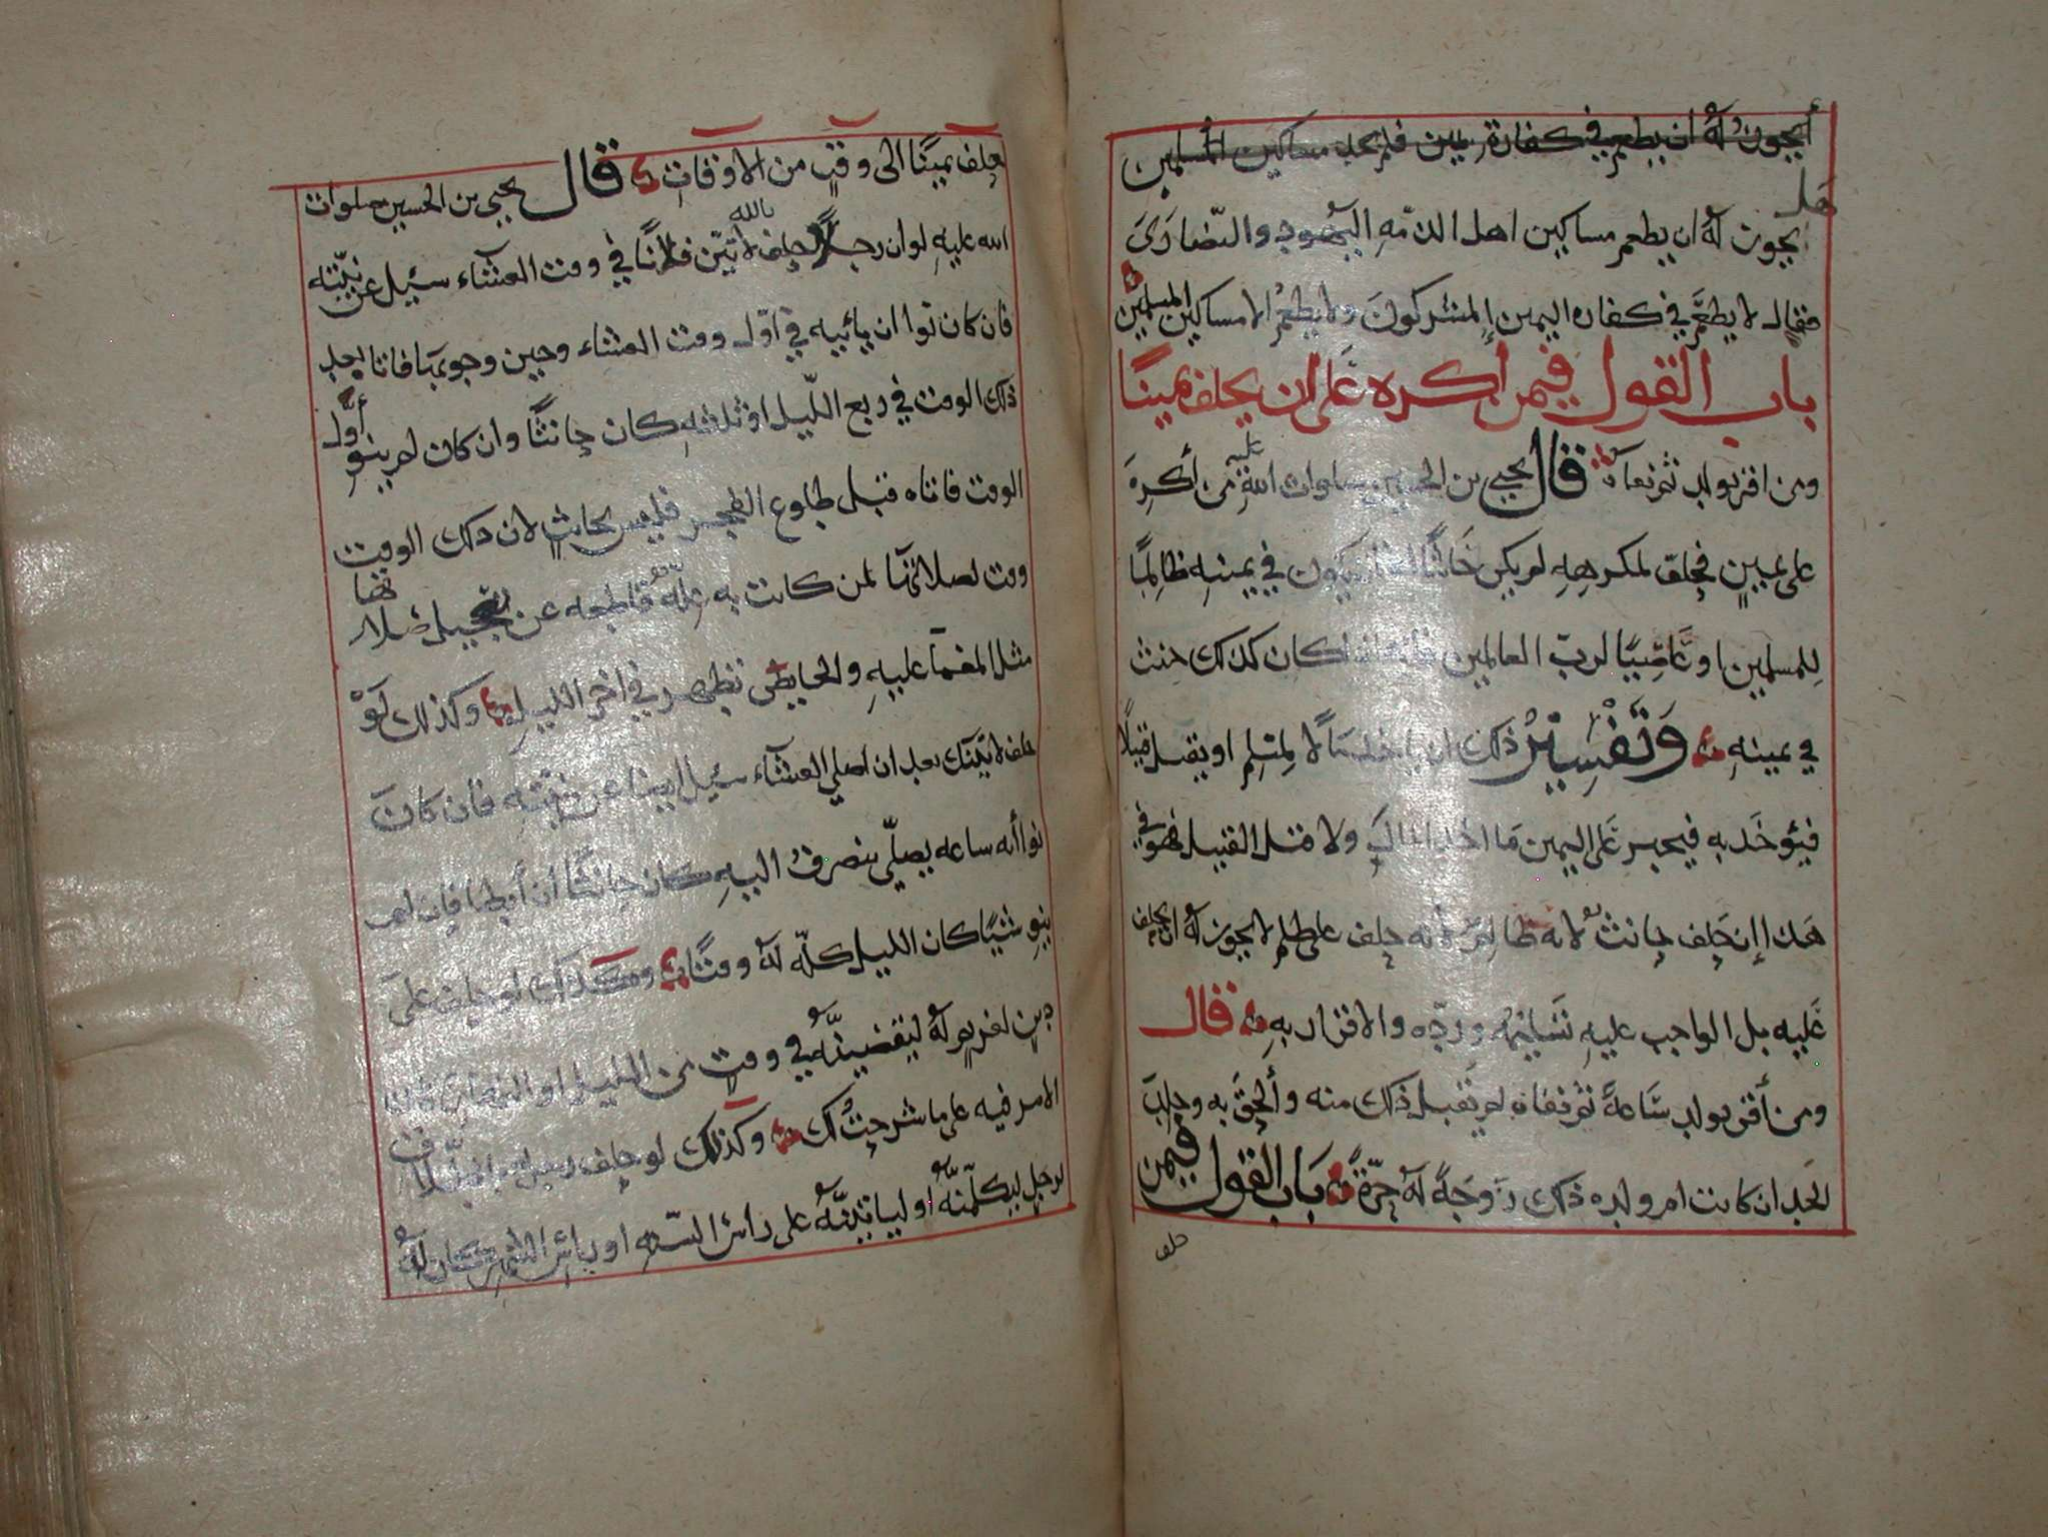 أيجوز له ان يطعم في كفارة يمين فلم يجد مساكين المسلمين
هل
يجوز له ان يطعم مساكين اهل الذمه اليهود والنصارى
فقال لا يطعم في كفاره اليمين المشركون ولا يطعم الا مساكين المسلمين
باب القول فيمن اكره على ان يحلف يمينًا
ومن اقر بولد ثم نفاه قال يحيى بن الحسين صلوات الله عليه من أكره
على يمينٍ فحلف لمكرهه لم يكن حانثًا يكون في يمينه ظالمًا
للمسلمين او عاصيًا لرب العالمين كان كذلك حنث
في يمينه وتفسير ذلك ان مالا لمسلم او يقتل قتيلا
فيؤخذ به فيجبر على اليمين ما اخذ المال ولا قتل القتيل فهو في
هذا إن حلف حانث لانه ظالم لانه حلف على ظلم لا يجوز له ان يحلف
عليه بل الواجب عليه ورده والاقرار به قال
ومن أقر بولد ساعة ثم نفاه لم يقبل ذلك منه وألحق به وجلد
الحد ان كانت ام ولده ذلك زوجة له حرة باب القول فيمن
حلف
يحلف يمينًا الى وقتٍ من الاوقات قال يحيى بن الحسين صلوات
الله عليه لو ان رجلا حلف بالله لاتين فلانًا في وقت العشاء سئيل عن نيته
فان كان نوا ان يأتيه في اول وقت العشاء وحين وجوبها فاتا بعد
ذلك الوقت في ربع الليل او ثلثه كان حانثًا وان كان لم ينو أول
الوقت فاتاه قبل طلوع الفجر فليس بحانثٍ لان ذلك الوقت
وقت لصلاتها لمن كانت به علة قاطعه عن تعجيل صلاتها
مثل المغما عليه والحايض تطهر في اخر الليل وكذلك لو
حلف لاتينك بعد ان اصلي العشاء سئيل ايضا عن نيته فان كان
نوا أنه ساعه يصلي ينصرف اليه كان حانثًا ان أبطا فان لم
ينو شيًا كان الليل كله له وقتًا وكذلك لو حلف على
دين لغريم له ليقضينه في وقت من الليل او النهار كان
الامر فيه على ما شرحت لك وكذلك لو حلف رجل
لرجل ليكلمنه او ليأتينه على رأس السنه او رأس الشهر كان له